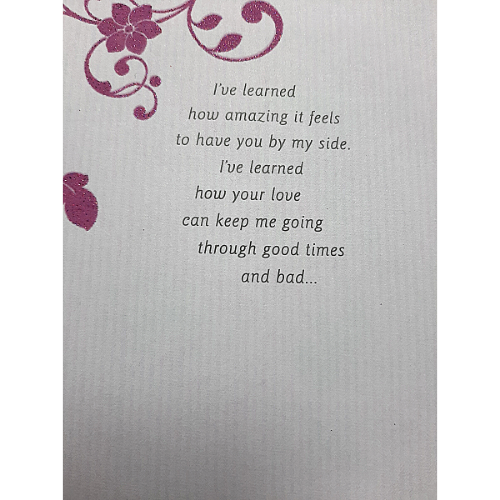 I've learned
how amazing it feels
to have you by my side.
I've learned
how your love
can keep me going
through good times
and bad...